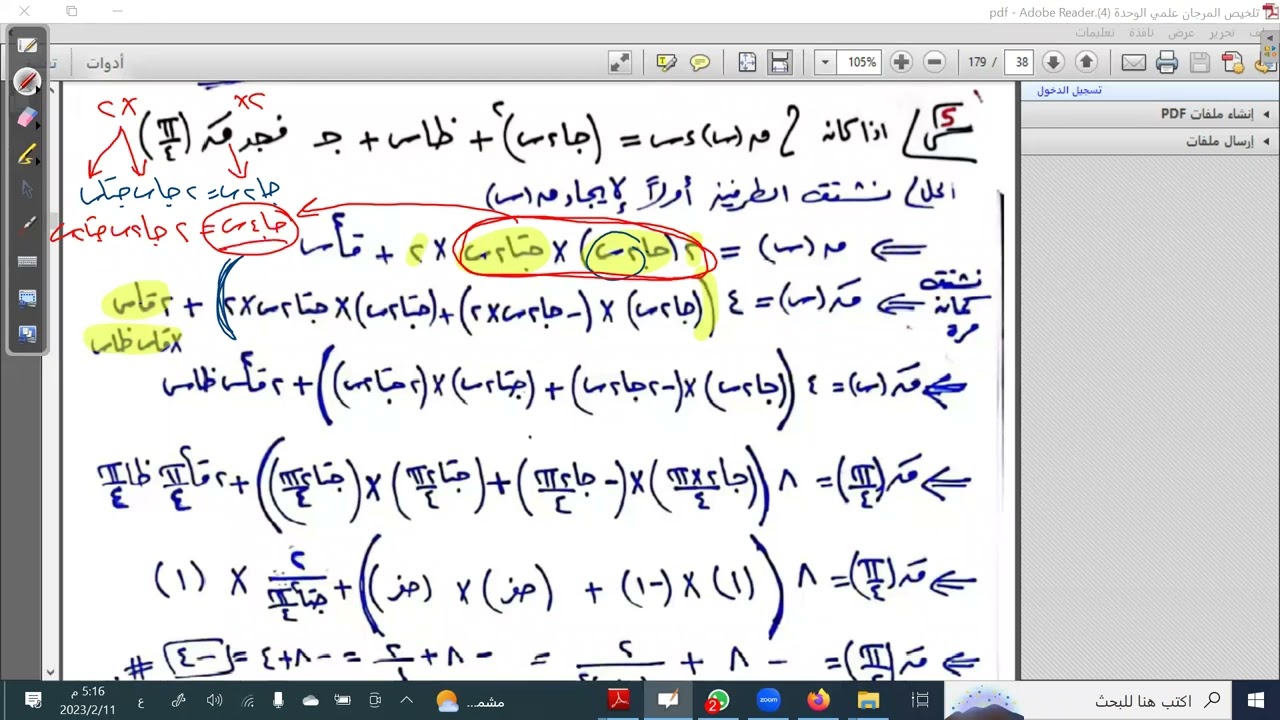 تلخيص المرجان علمي الوحدة (4).pdf - Adobe Reader
تحرير عرض نافذة تعليمات
أدوات
105%
179 / 38
تسجيل الدخول
إنشاء ملفات PDF
إرسال ملفات
اذا كانه ∫ مه(س) ءس = (جا٢س)^٢ + ظاس + جـ فجد مَه(π/٤)
الحل/ نشتقه الطرفين أولاً لإيجاد مه(س)
٢× ×٢
جا٢س = ٢جاس جتاس
جا٤س = ٢جا٢س جتا٢س
⇐ مه(س) = ٢(جا٢س) × جتا٢س × ٢ + قا^٢س
نشتقه كمانه مره ⇐ مَه(س) = ٤((جا٢س) × (-جا٢س×٢) + (جتا٢س) × جتا٢س×٢) + ٢قاس
×قاس ظاس
⇐ مَه(س) = ٤((جا٢س) × (-٢جا٢س) + (جتا٢س) × (٢جتا٢س)) + ٢قا^٢س ظاس
⇐ مَه(π/٤) = ٨((جا٢×π/٤) × (-جا٢π/٤) + (جتا٢π/٤) × (جتا٢π/٤)) + ٢قا^٢π/٤ ظاπ/٤
⇐ مَه(π/٤) = ٨((١) × (-١) + (صفر) × (صفر)) + ٢/جتا^٢π/٤ × (١)
⇐ مَه(π/٤) = -٨ + ٢ = -٨ + ٢/١ = -٨+٤ = -٤ #
اكتب هنا للبحث
2
zoom
مشمـ...
ع
5:16 م
2023/2/11